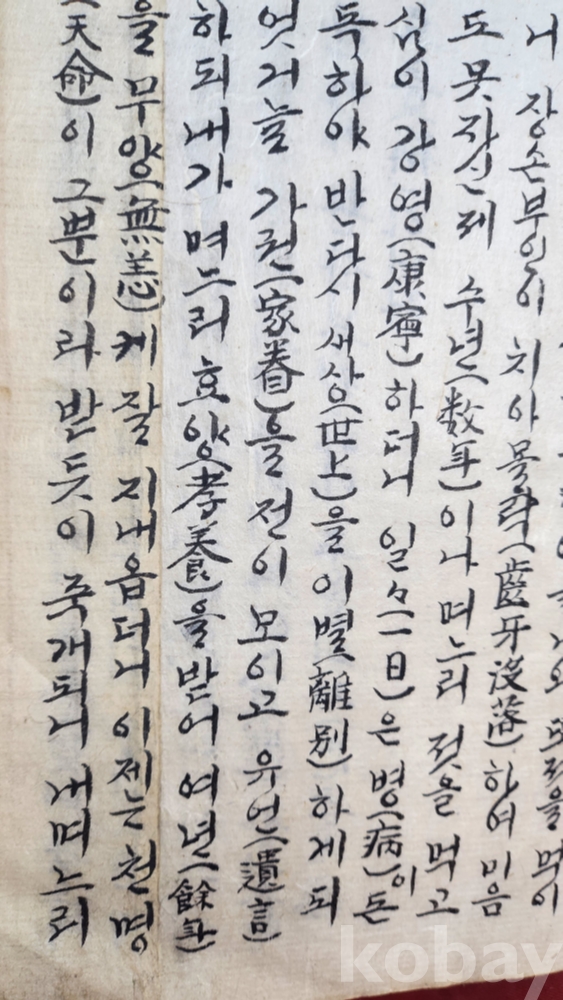 젖을 먹이
니 장손부인이 치아몰락(齒牙沒落)하여 미음
도 못자신제 수년(数年)이나 며느리 젓을 먹고
심이 강영(康寧)하더니 일々(一日)은 병(病)이 돈
독하야 반다시 새상(世上)을 이별(離別)하게 되
엇거늘 가권(家眷)을 전이 모이고 유언(遺言)
하되 내가 며느리 효양(孝養)을 받어 여년(餘年)
을 무양(無恙)케 잘 지내옵더니 이제는 천명
(天命)이 그뿐이라 받듯이 죽개되니 내며느리
kobay